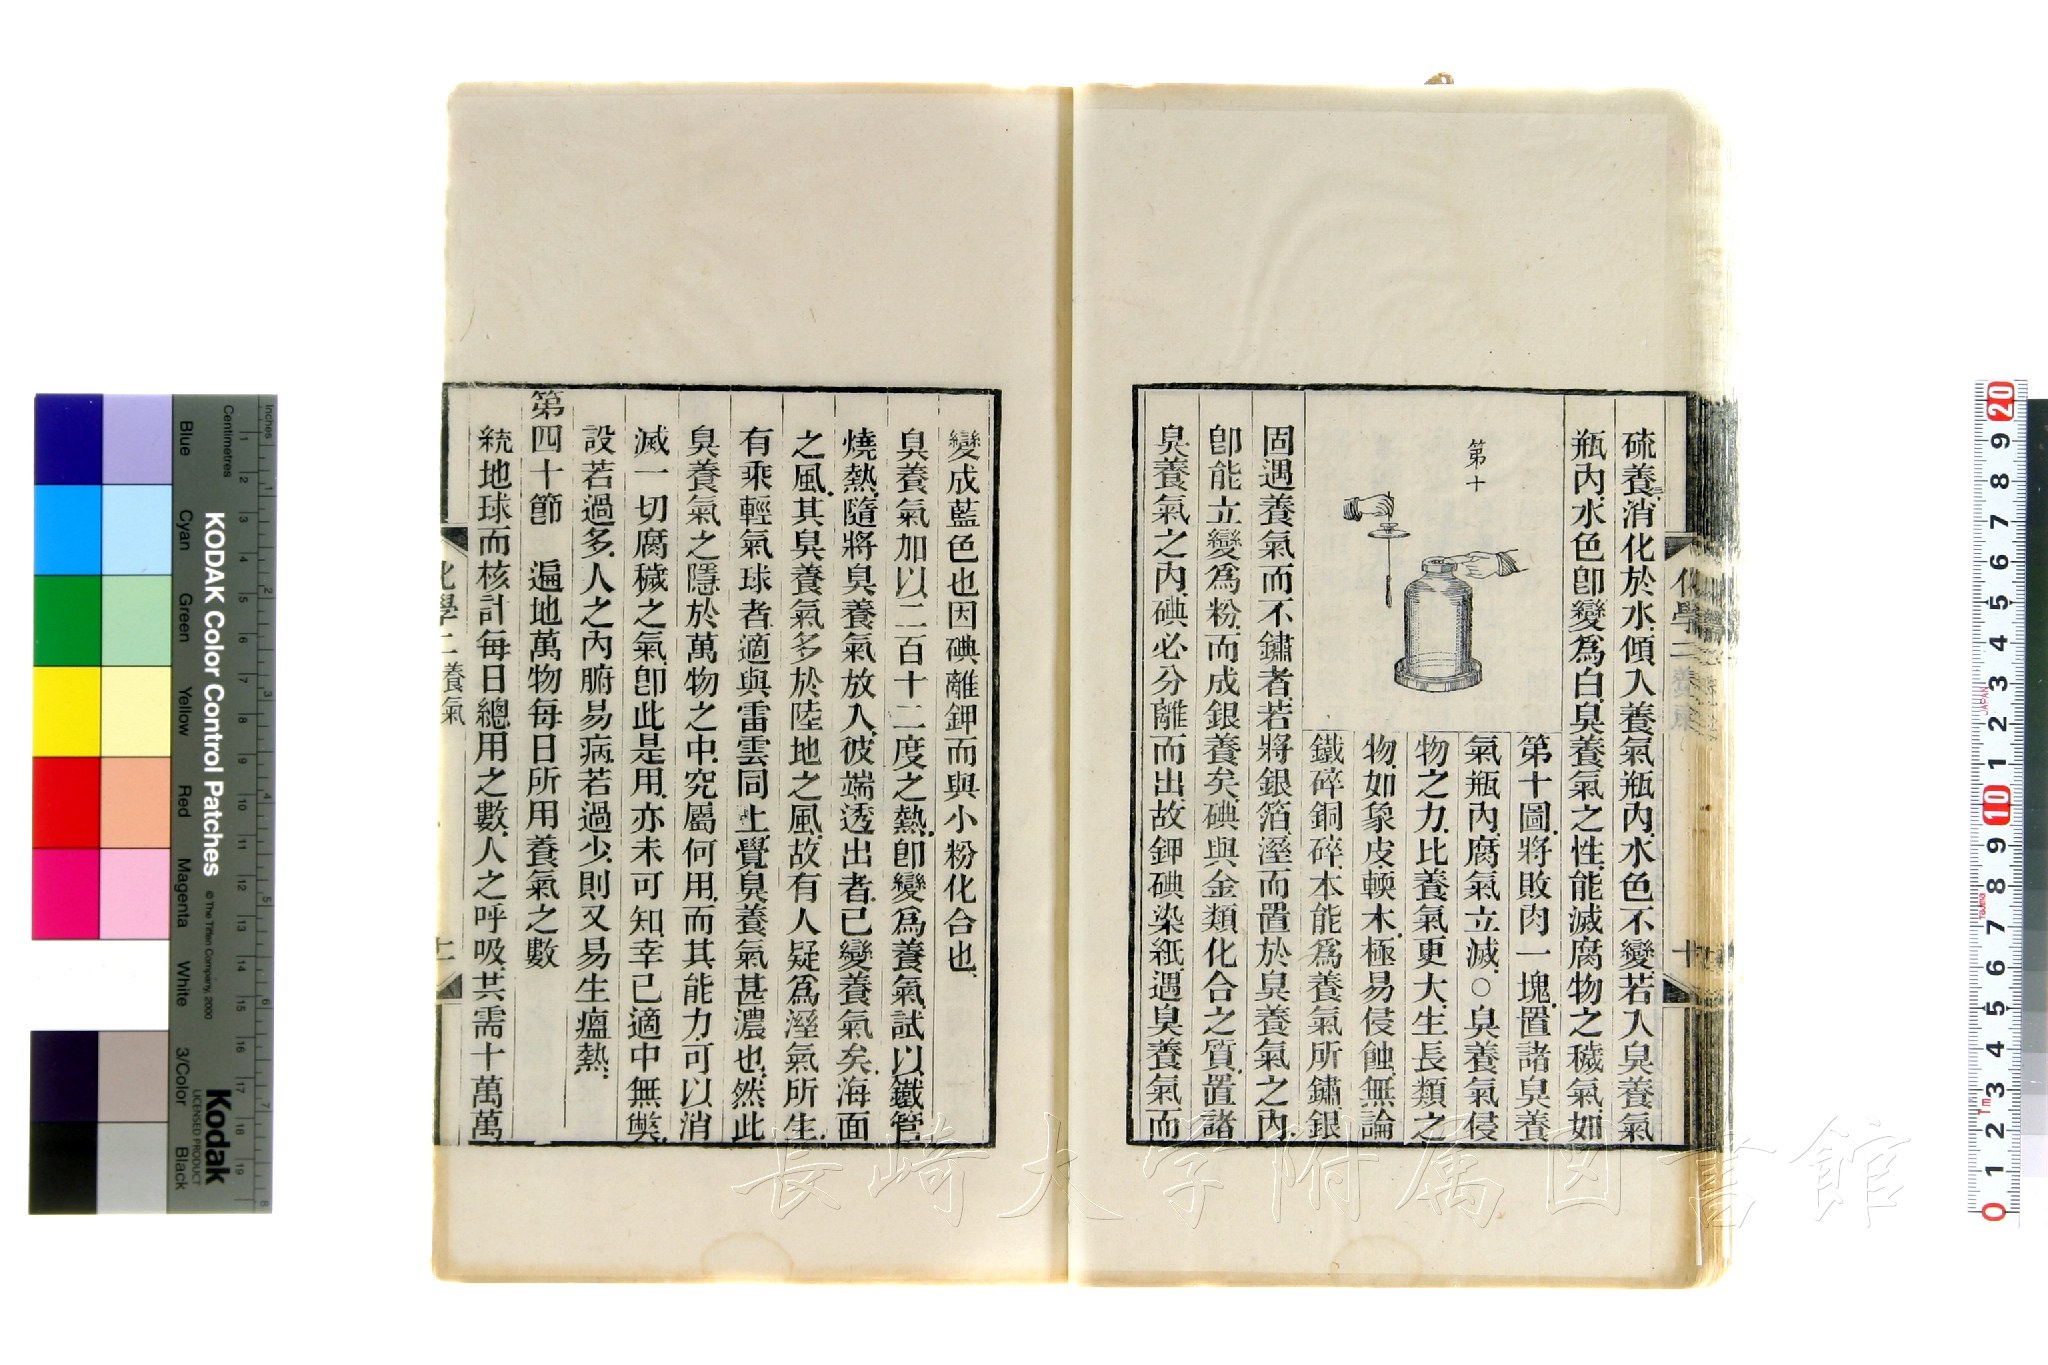 硫養三消化於水傾入養氣瓶內水色不變若入臭養氣
瓶內水色卽變爲白臭養氣之性能滅腐物之穢氣如
第十
第十圖將敗肉一塊置諸臭養
氣瓶內腐氣立滅○臭養氣侵
物之力比養氣更大生長類之
物如象皮輭木極易侵蝕無論
鐵碎銅碎本能爲養氣所鏽銀
固遇養氣而不鏽者若將銀箔溼而置於臭養氣之內
卽能立變爲粉而成銀養矣碘與金類化合之質置諸
臭養氣之內碘必分離而出故鉀碘染紙遇臭養氣而
化學二
十
變成藍色也因碘離鉀而與小粉化合也
臭養氣加以二百十二度之熱卽變爲養氣試以鐵管
燒熱隨將臭養氣放入彼端透出者已變養氣矣海面
之風其臭養氣多於陸地之風故有人疑爲溼氣所生
有乘輕氣球者適與雷雲同上覺臭養氣甚濃也然此
臭養氣之隱於萬物之中究屬何用而其能力可以消
滅一切腐穢之氣卽此是用亦未可知幸已適中無獘
設若過多人之內腑易病若過少則又易生瘟熱
第四十節　遍地萬物每日所用養氣之數
統地球而核計每日總用之數人之呼吸共需十萬萬
化學二養氣
KODAK Color Control Patches
© The Tiffen Company, 2000
Kodak
LICENSED PRODUCT
Inches
Centimetres
Blue
Cyan
Green
Yellow
Red
Magenta
White
3/Color
Black
長崎大学附属図書館